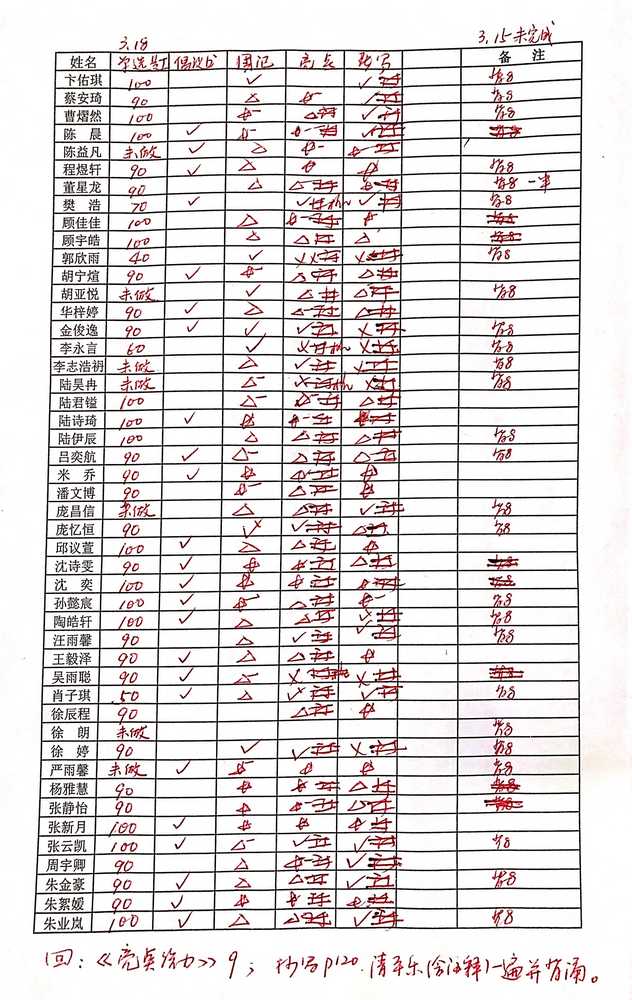 3.18 3.15未完成
姓名 周记 亮点 备 注
卞佑琪 100 ✓ 背8
蔡安琦 90 △ 背8
曹熠然 100 背8
陈 晨 100 ✓
陈益凡 未做 ✓ △
程煜轩 90 ✓ △ 背8
董星龙 90 △ △ 背8 一半
樊 浩 70 ✓ ✓ ✓ 背8
顾佳佳 100 △
顾宇皓 100 △ △ △
郭欣雨 40 ✓ × × 背8
胡宁煊 90 ✓ △ △
胡亚悦 未做 ✓ △ △ 背8
华梓婷 90 ✓ △ △ △
金俊逸 90 ✓ ✓ ✓ × 背8
李永言 60 ✓ × × 背8
李志浩礽 未做 △ ✓ × 背8
陆昊冉 未做 △ × × 背8
陆君镒 100 △ △
陆诗琦 100 ✓
陆伊辰 100 △ △ △ 背8
吕奕航 90 ✓ △ △ △ 背8
米 乔 90 ✓
潘文博 90 △
庞昌信 未做 △ △ ✓ 背8
庞忆恒 90 ✓ △ 背8
邱议萱 100 ✓ △ △
沈诗雯 90 ✓ △ ✓
沈 奕 100 ✓
孙懿宸 100 ✓ △ 背8
陶皓轩 100 ✓ △ △ ✓ 背8
汪雨馨 90 △ ✓ ✓ 背8
王毅泽 90 ✓ △ △
吴雨聪 90 ✓ △ × ×
肖子琪 50 ✓ △ ✓ ✓ 背8
徐辰程 90 △
徐 朗 未做 背8
徐 婷 90 ✓ ✓ × 背8
严雨馨 未做 ✓ 背8
杨雅慧 90 △
张静怡 90 △
张新月 100 ✓
张云凯 100 ✓ △ ✓ ✓ 背8
周宇卿 90 △ ✓
朱金豪 90 ✓ △ △ ✓ 背8
朱絮媛 90 ✓
朱业岚 100 ✓ △ △ ✓ 背8
回:《亮点给力》9; 抄写P120.清平乐(含注释)一遍并背诵。